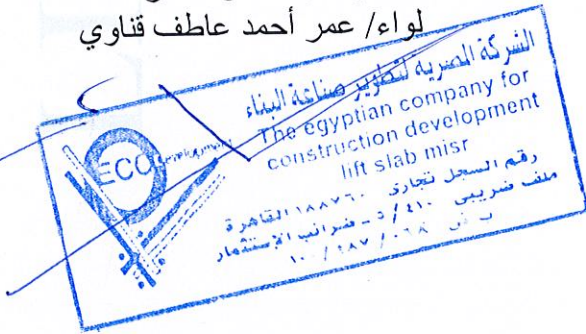 لواء/ عمر أحمد عاطف قناوي
الشركة المصرية لتطوير صناعة البناء
The egyptian company for
construction development
lift slab misr
ECO
رقم السجل تجارى ١٨٨٧٦٠ القاهرة
ملف ضريبى ٤١٠ / ٥ - ضرائب الإستثمار